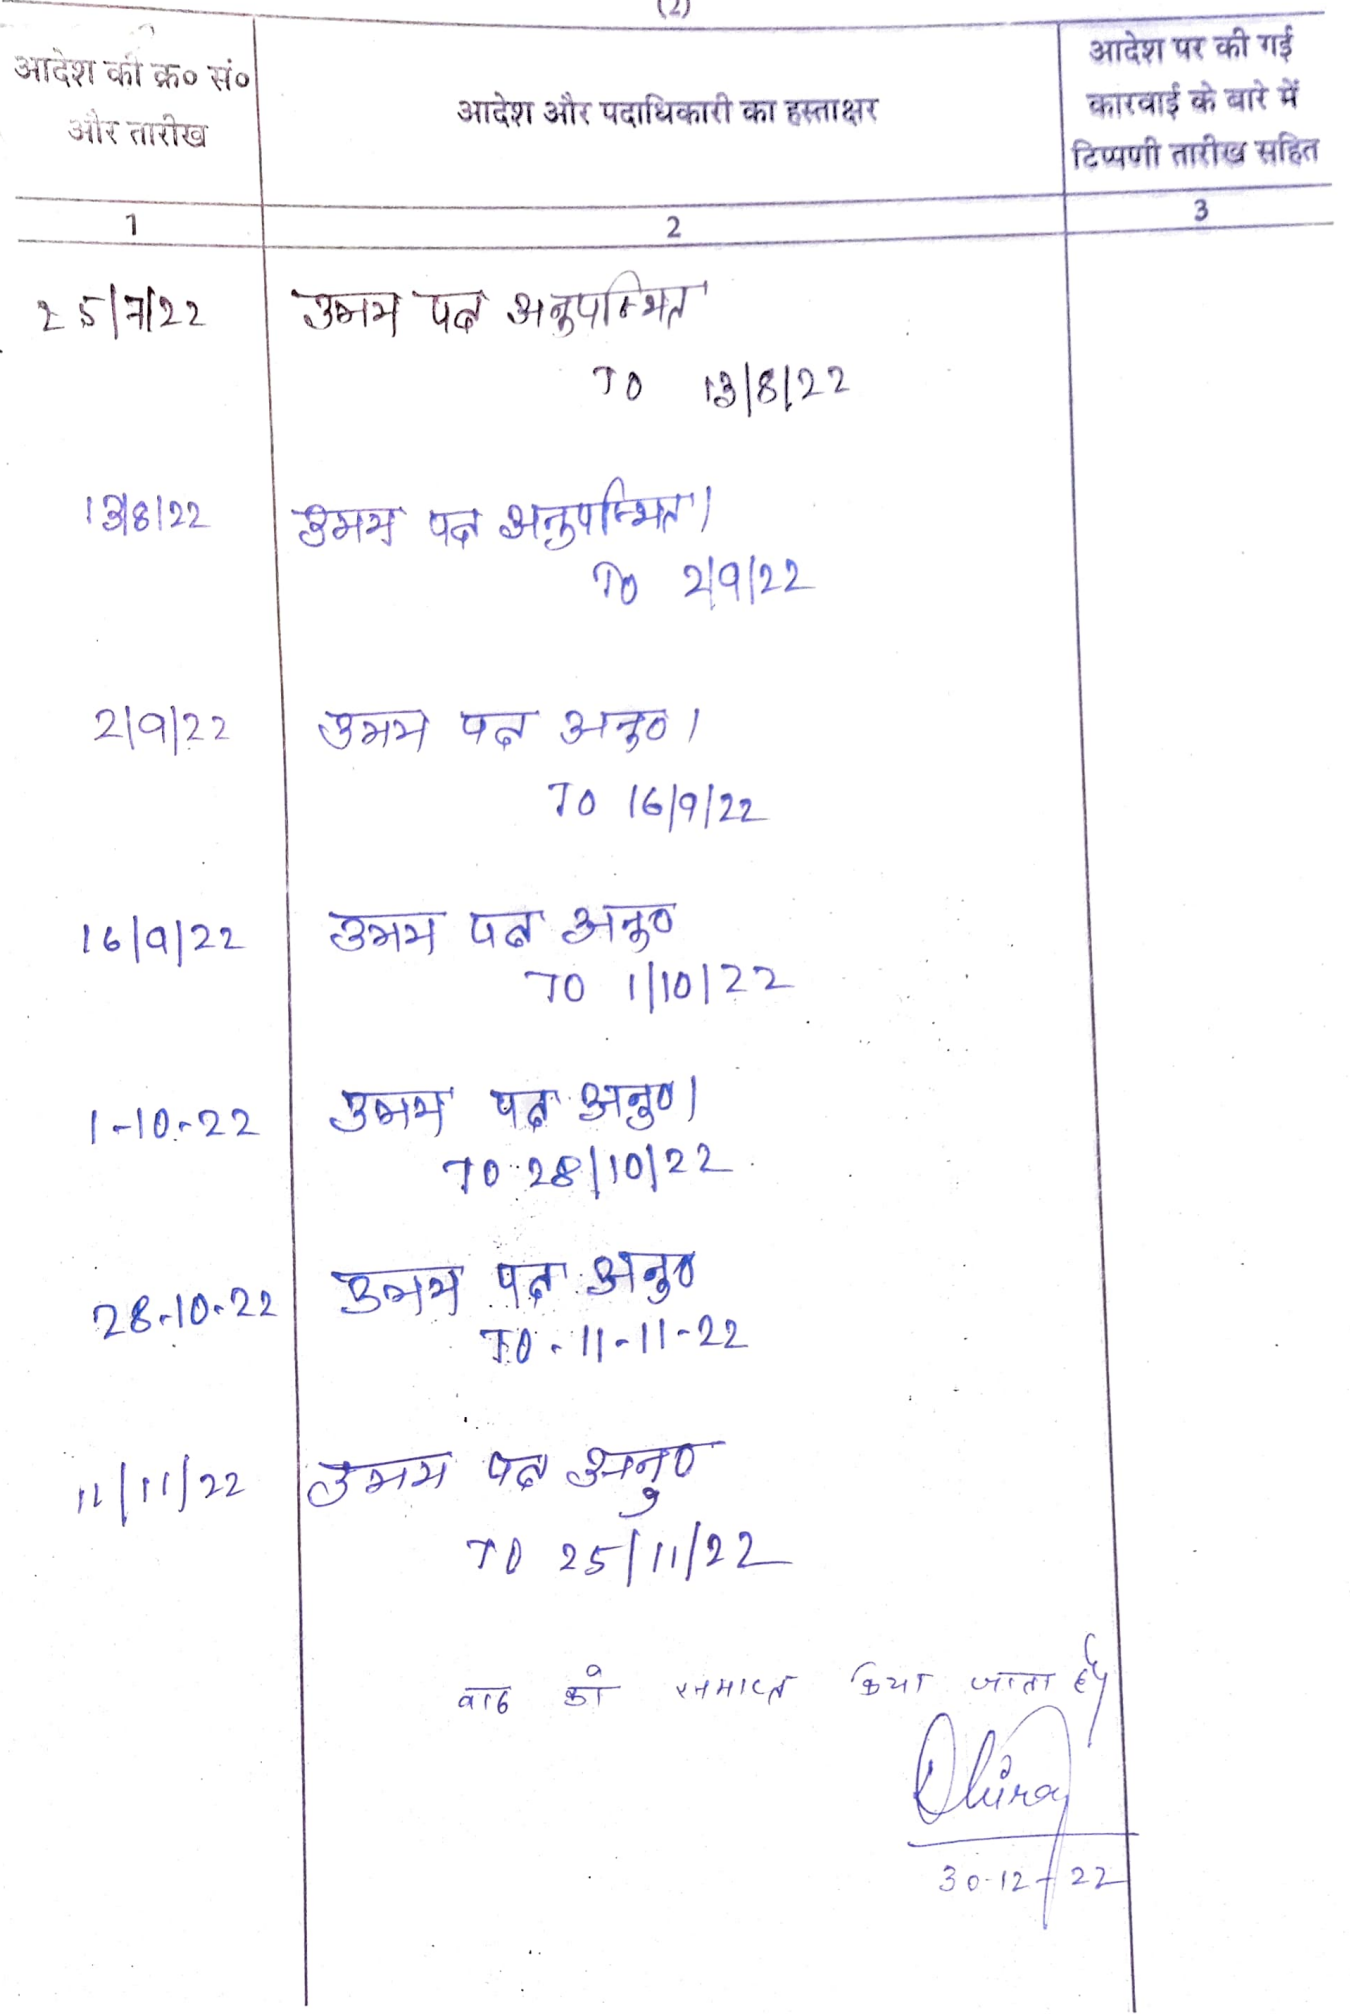 (2)
आदेश की क्र० सं०
और तारीख
आदेश और पदाधिकारी का हस्ताक्षर
आदेश पर की गई
कारवाई के बारे में
टिप्पणी तारीख सहित
1
2
3
25/7/22
उभय पक्ष अनुपस्थित
TO 13/8/22
13/8/22
उभय पक्ष अनुपस्थित।
TO 2/9/22
2/9/22
उभय पक्ष अनु०।
TO 16/9/22
16/9/22
उभय पक्ष अनु०
TO 1/10/22
1-10-22
उभय पक्ष अनु०।
TO 28/10/22
28-10-22
उभय पक्ष अनु०
TO - 11-11-22
11/11/22
उभय पक्ष अनु०
TO 25/11/22
वाद को समाप्त किया जाता है।
Dhiraj
30-12-22